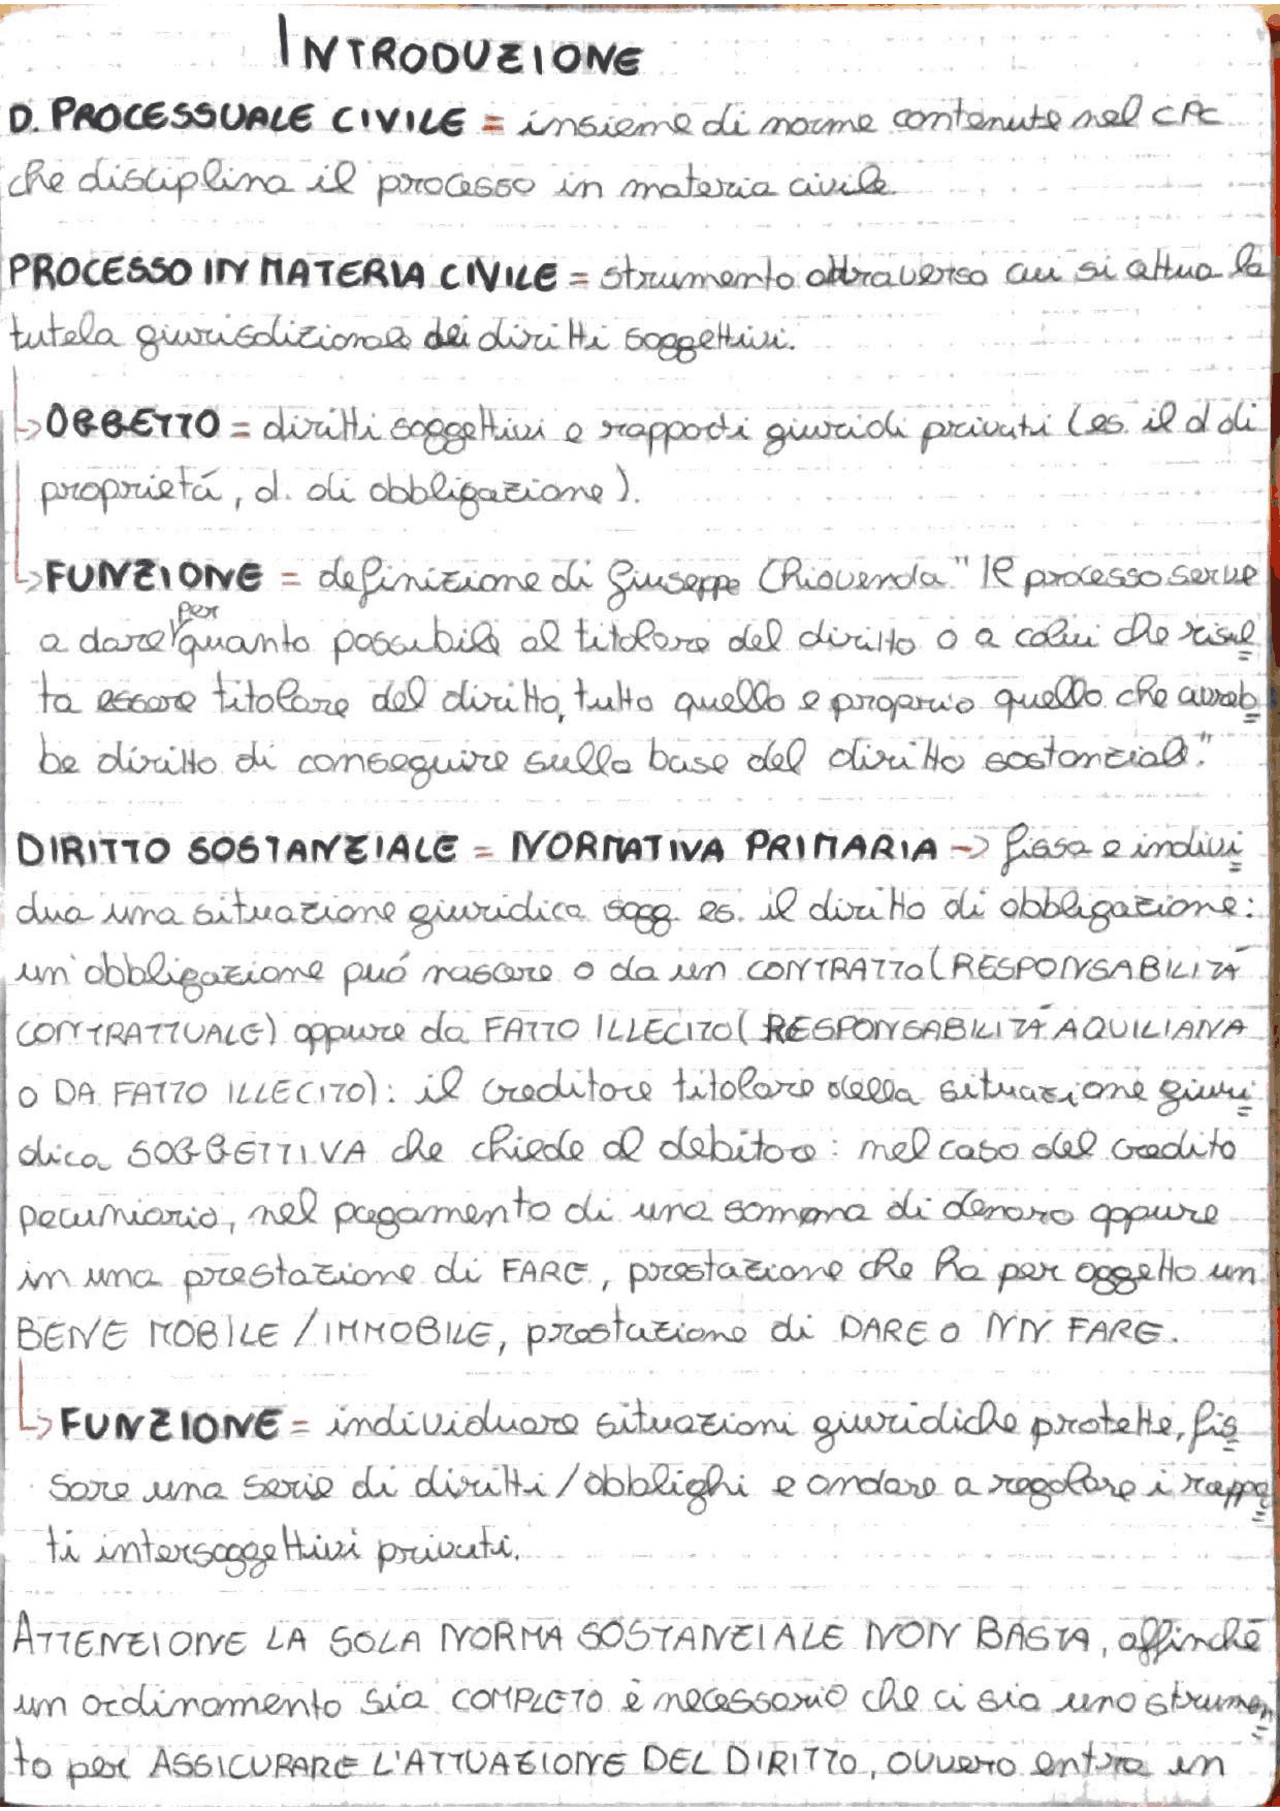 INTRODUZIONE
D. PROCESSUALE CIVILE = insieme di norme contenute nel CPC
che disciplina il processo in materia civile
PROCESSO IN MATERIA CIVILE = strumento attraverso cui si attua la
tutela giurisdizionale dei diritti soggettivi.
↳ OGGETTO = diritti soggettivi e rapporti giuridici privati (es. il d di
proprietá, d. di obbligazione).
↳ FUNZIONE = definizione di Giuseppe Chiovenda "Il processo serve
per
a dare quanto possibile al titolare del diritto o a colui che risul
ta essere titolare del diritto, tutto quello e proprio quello che avreb
be diritto di conseguire sulla base del diritto sostanziale."
DIRITTO SOSTANZIALE = NORMATIVA PRIMARIA -> fissa e indivi
dua una situazione giuridica sogg. es. il diritto di obbligazione:
un'obbligazione puó nascere o da un CONTRATTO (RESPONSABILITÁ
CONTRATTUALE) oppure da FATTO ILLECITO (RESPONSABILITÁ AQUILIANA
O DA FATTO ILLECITO): il creditore titolare della situazione giuri
dica SOGGETTIVA che chiede al debitore: nel caso del credito
pecuniario, nel pagamento di una somma di denaro oppure
in una prestazione di FARE, prestazione che ha per oggetto un
BENE MOBILE / IMMOBILE, prestazione di DARE O NN FARE.
↳ FUNZIONE = individuare situazioni giuridiche protette, fis
sare una serie di diritti/obblighi e andare a regolare i rappo
ti intersoggettivi privati.
ATTENZIONE LA SOLA NORMA SOSTANZIALE NON BASTA, affinché
un ordinamento sia COMPLETO è necessario che ci sia uno strumen
to per ASSICURARE L'ATTUAZIONE DEL DIRITTO, ovvero entra in